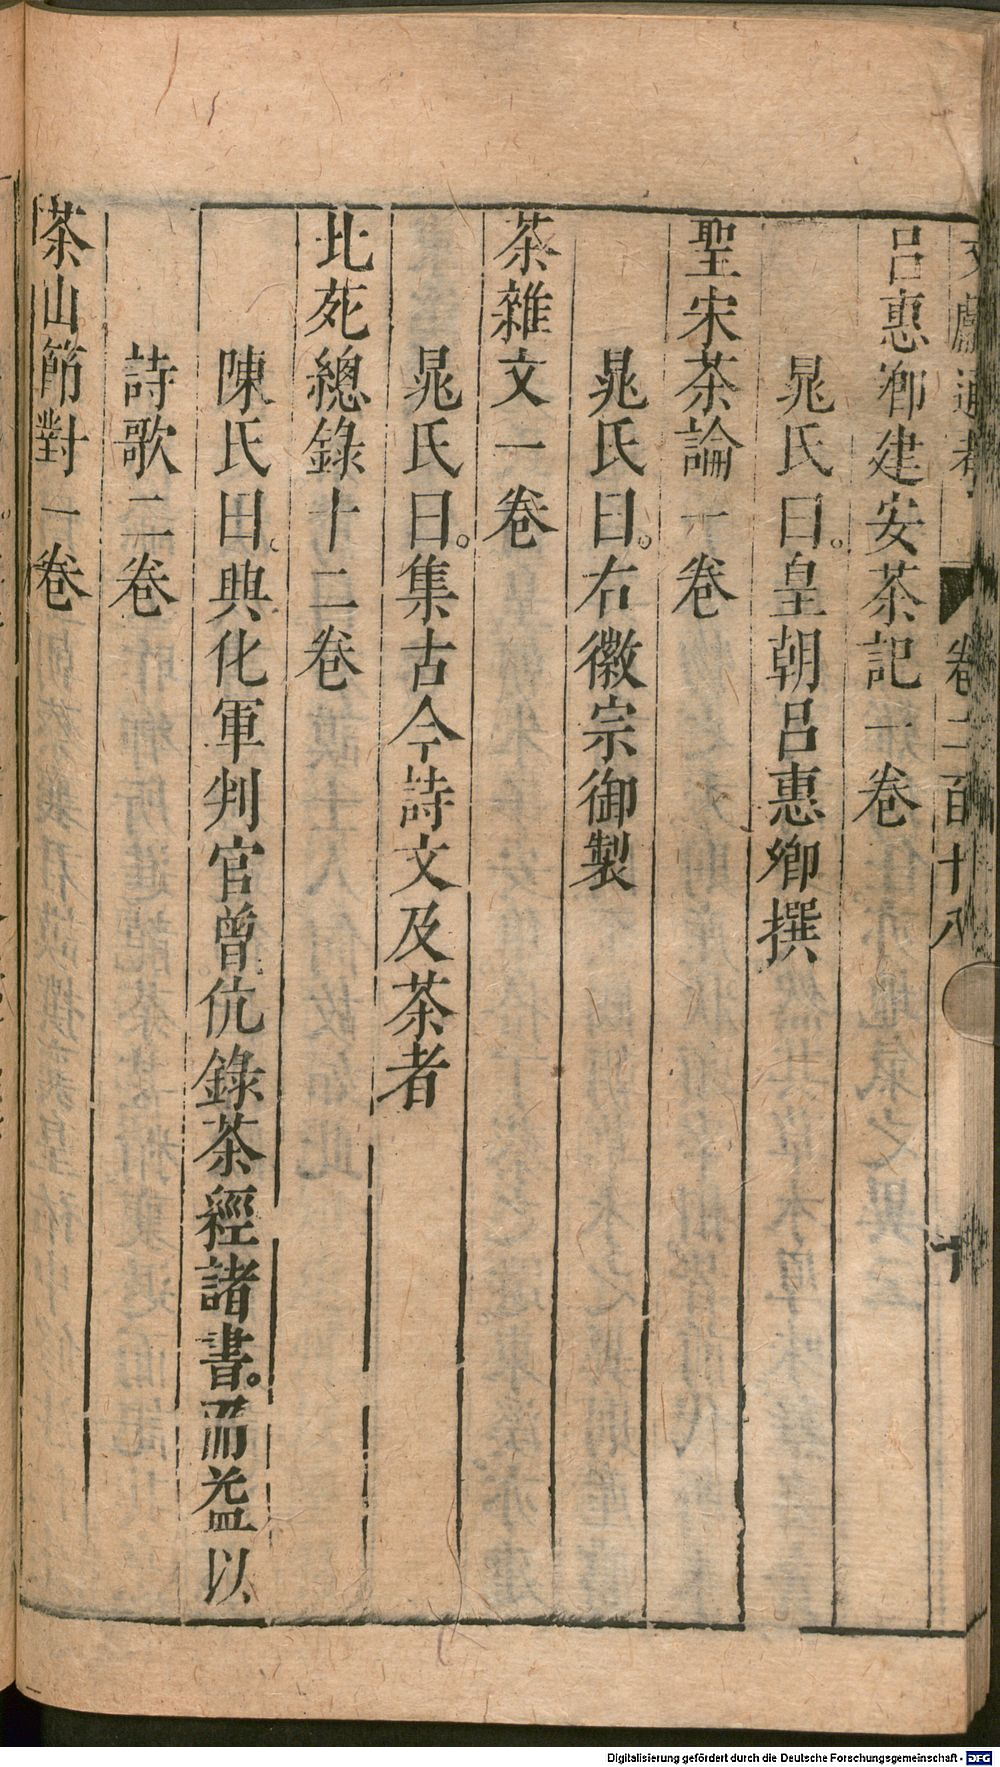 文獻通考 卷二百十八 十
呂惠卿建安茶記一卷
晁氏曰。皇朝呂惠卿撰
聖宋茶論一卷
晁氏曰。右徽宗御製
茶雜文一卷
晁氏曰。集古今詩文及茶者
北苑總錄十二卷
陳氏曰。興化軍判官曾伉錄茶經諸書。而益以
詩歌二卷
茶山節對一卷
Digitalisierung gefördert durch die Deutsche Forschungsgemeinschaft - DFG